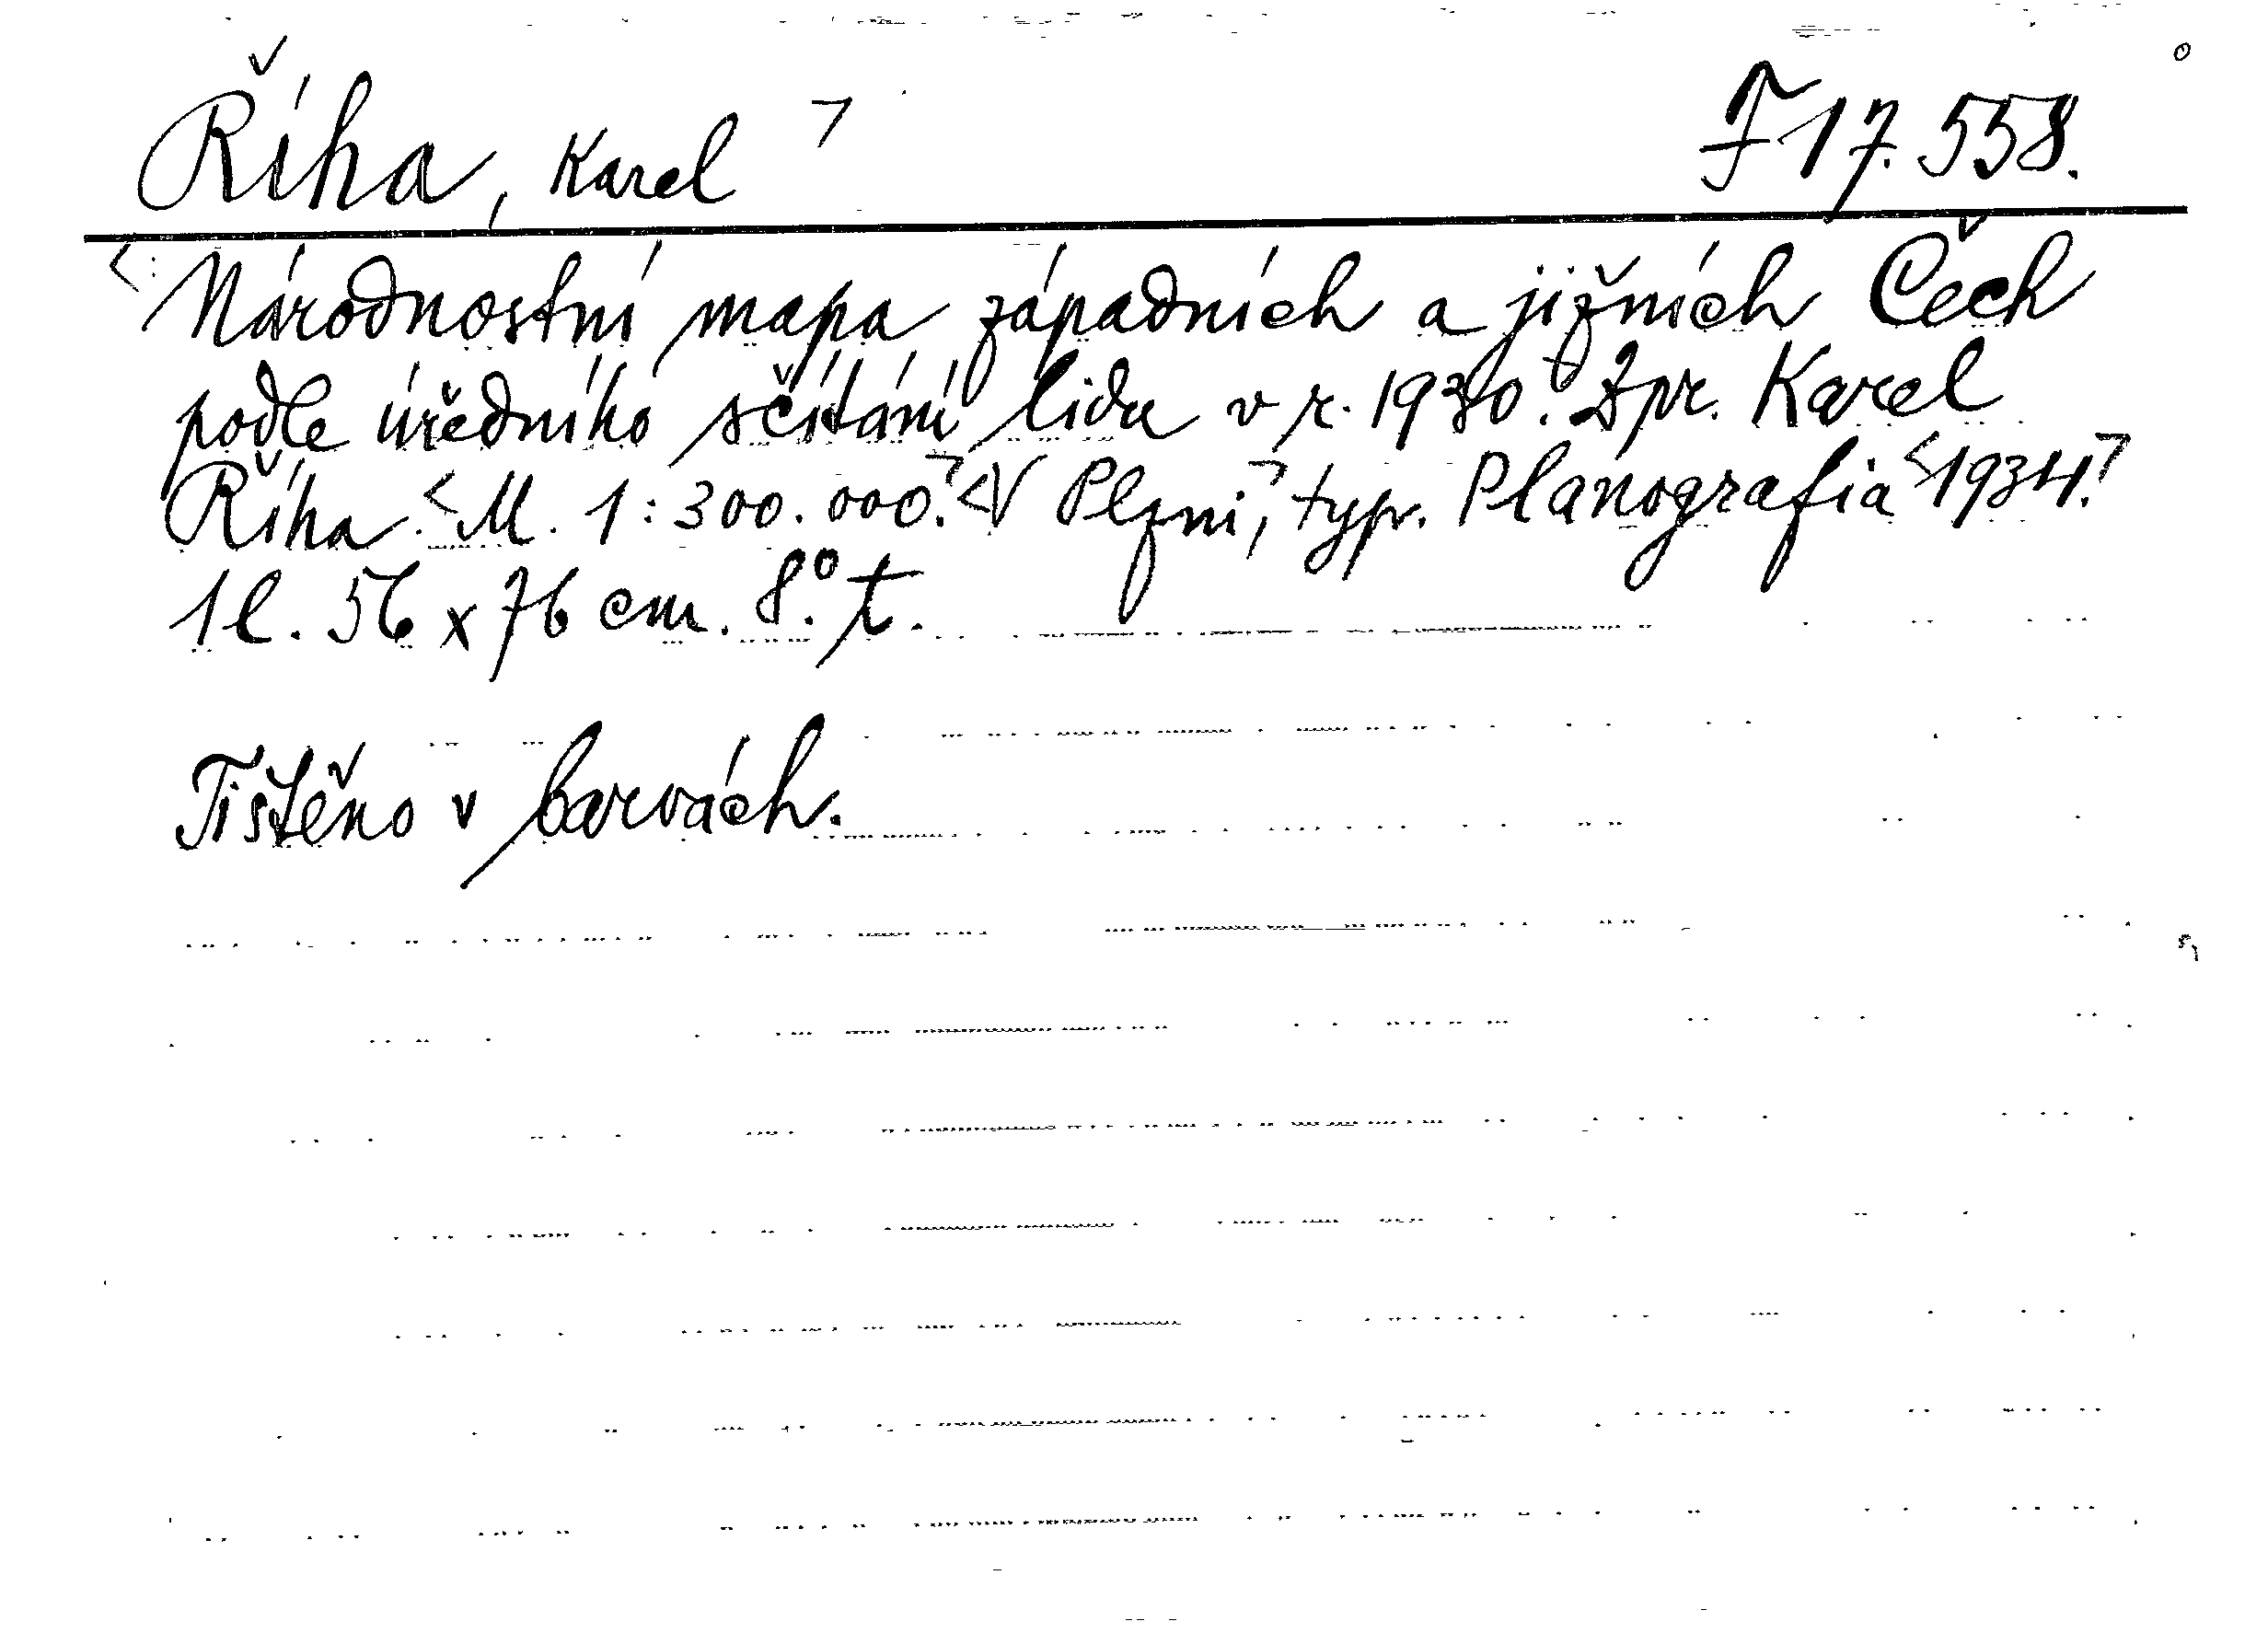 Říha, Karel ˥ F 17.558.
< Národnostní mapa západních a jižních Čech
podle úředního sčítání lidu v r. 1930. Zpr. Karel
Říha. <M. 1:300.000.˥ <V Plzni,˥ typ. Planografia <1934.˥
1 l. 56 x 76 cm. 8°. t.
Tištěno v barvách.